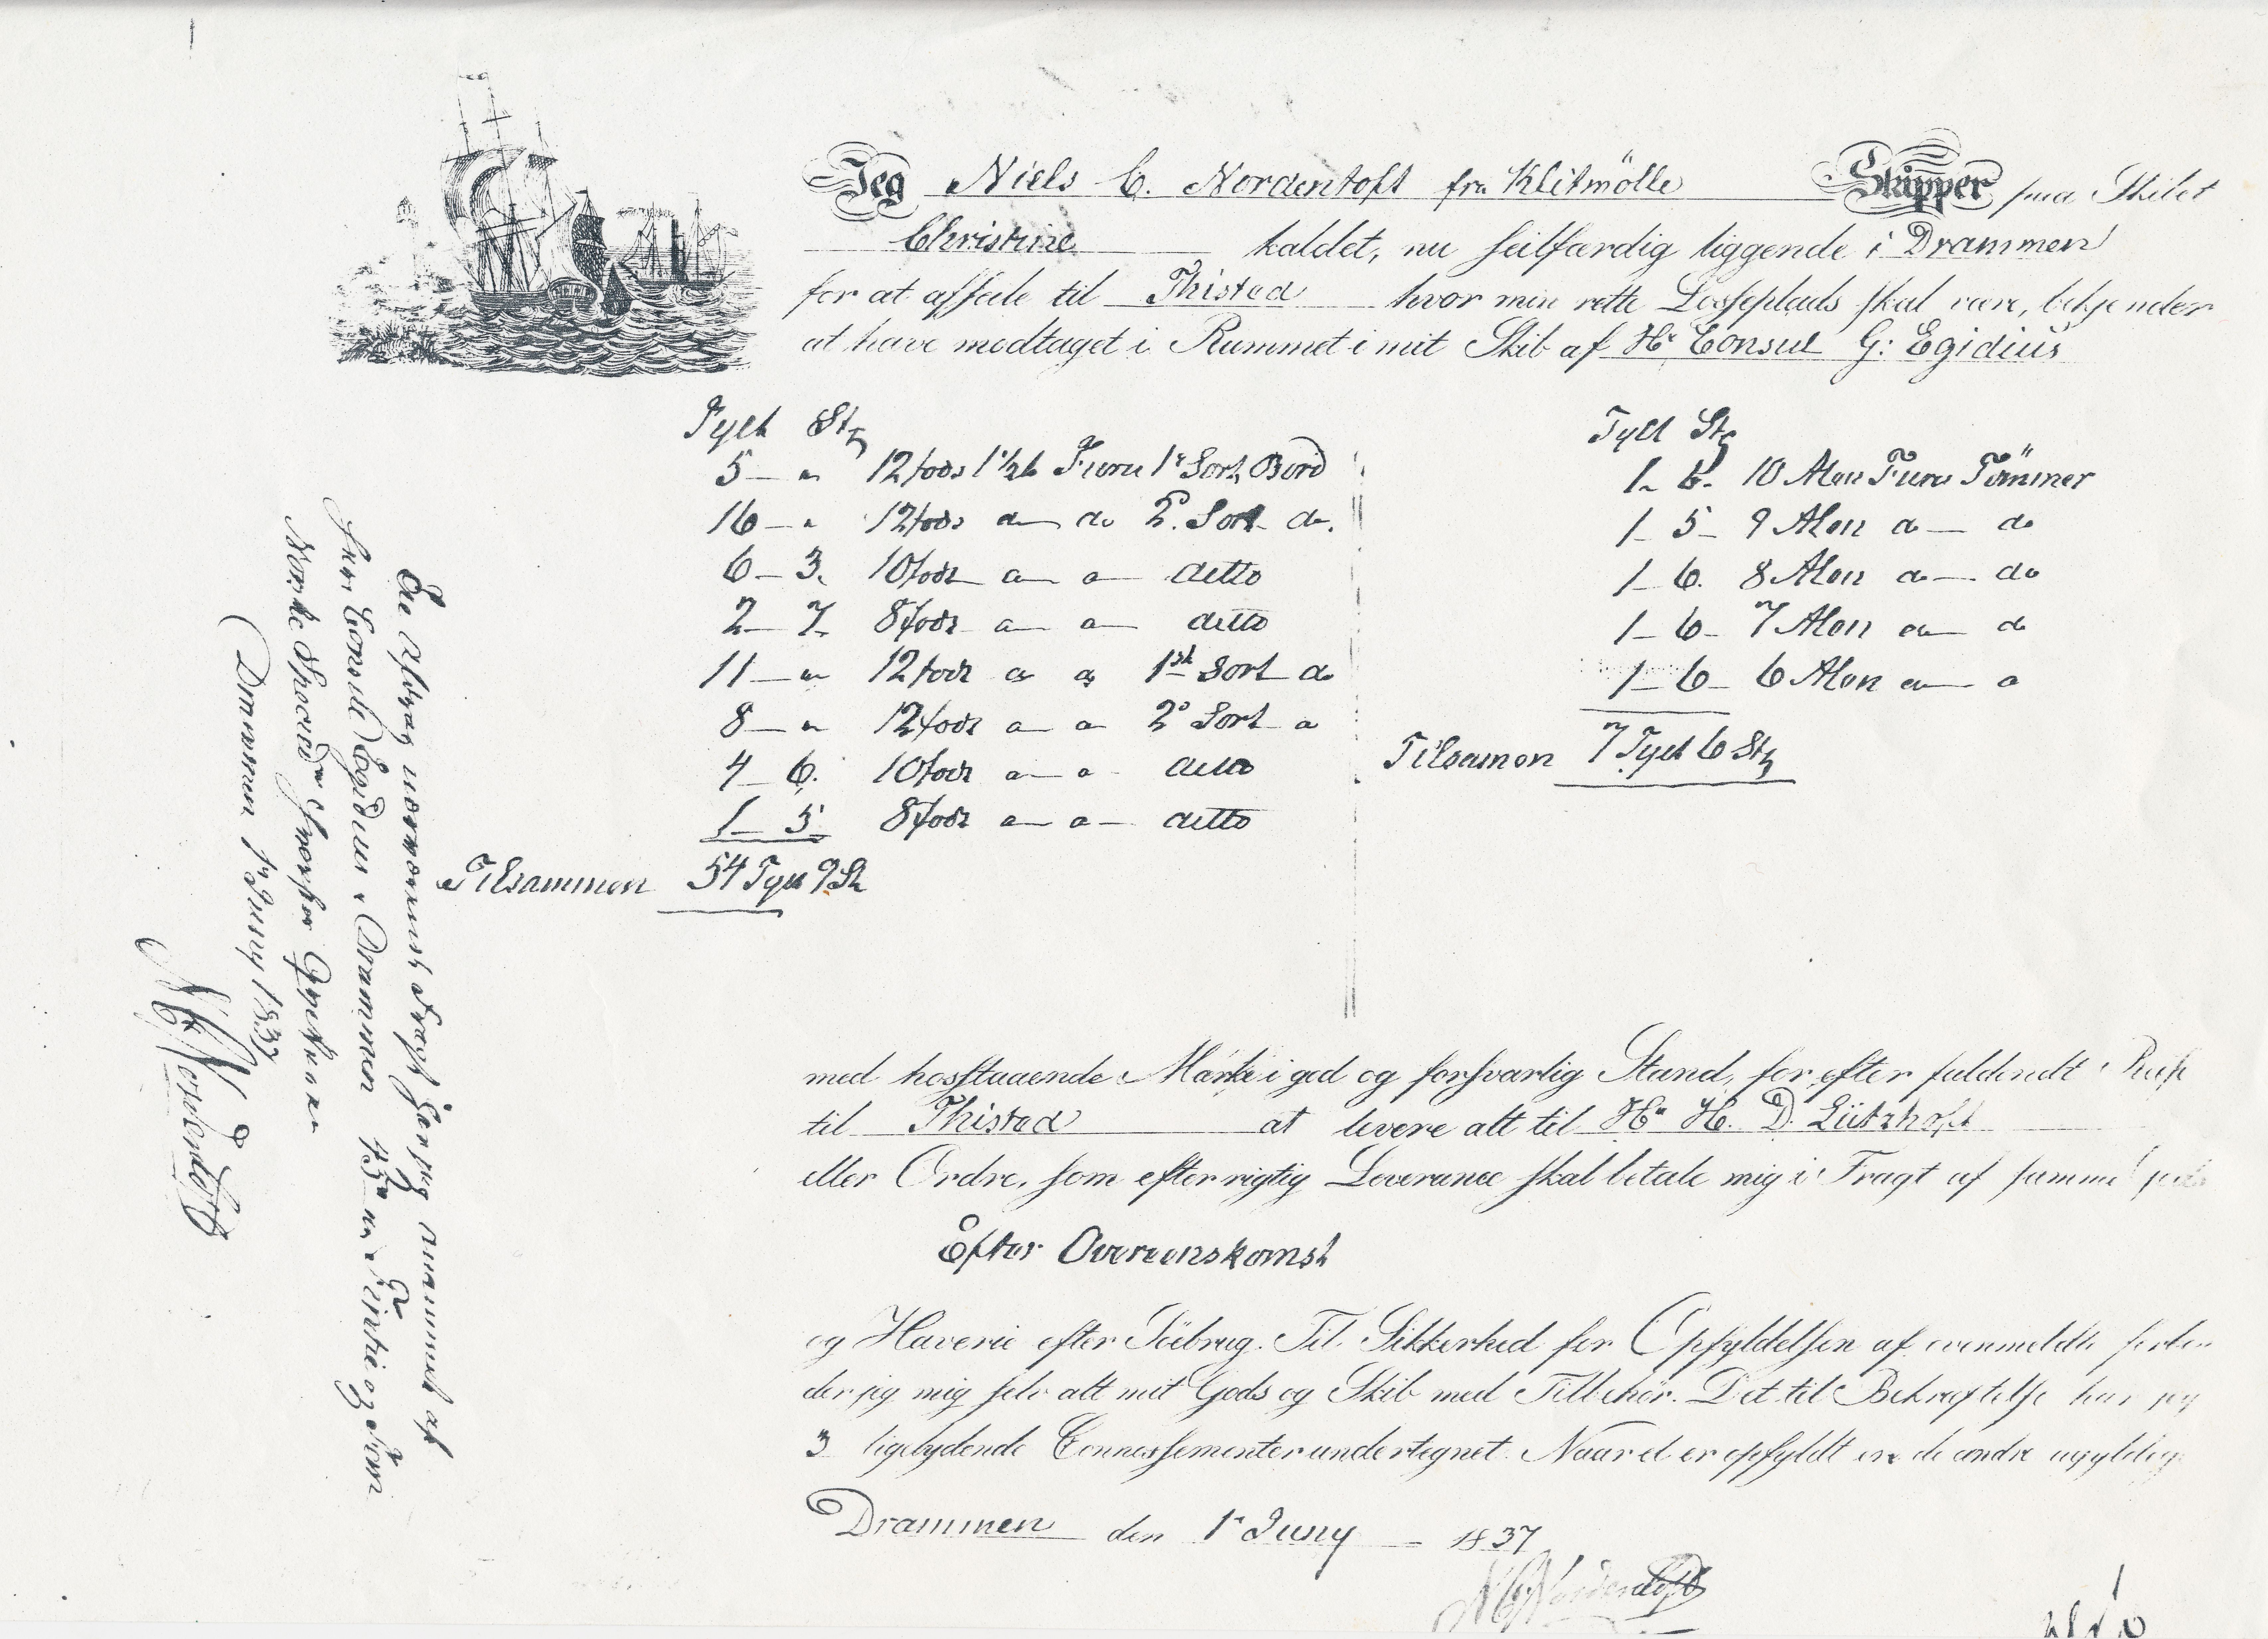 Jeg Niels C. Nordentoft fra Klitmölle Skipper paa Skibet
Christine kaldet, nu seilfærdig liggende i Drammen
for at affeile til Thisted hvor min rette Losseplads skal være, bekjender
at have modtaget i Rummet i mit Skib af Hr Consul G: Egidius
Tylt Stk
5 — " 12 fods 1 1/2 t Furu 1r Sort Bord
16 — " 12 fods do do 2. Sort do.
6 — 3. 10 fods do do ditto
2 — 7. 8 fods do do ditto
11 — " 12 fods do do 1st Sort do
8 — " 12 fods do do 2e Sort do
4 — 6. 10 fods do do ditto
1 — 5 8 fods do do ditto
Tilsammen 54 Tylt 9 St
Tylt Stk
1 - 6. 10 Alen Furu Tömmer
1 - 5 - 9 Alen do — do
1 - 6. 8 Alen do — do
1 - 6 - 7 Alen do — do
1 - 6 - 6 Alen do — do
Tilsamen 7 Tylt 6 Stk
med hosstaaende Mærke i god og forsvarlig Stand, for efter fuldendt Reise
til Thisted at levere alt til Hr H. D. Lützhoft
eller Ordre, som efter rigtig Leverance skal betale mig i Fragt af samme
Efter Overeenskomst
og Haverie efter Söebrug. Til Sikkerhed for Opfyldelsen af ovenmeldte forbin
der jeg mig selv alt mit Gods og Skib med Tilbehör. Det til Bekræftelse har jeg
3 ligelydende Connossementer undertegnet. Naar et er opfyldt ere de andre ugyldig
Drammen den 1r Juny 1837
NCNordentoft
Paa Afdrag nærværende Fragt har jeg annammet af
Herr Consul Egidius i Drammen
Norske Specier
Drammen 1r Juny 1837
NCNordentoft